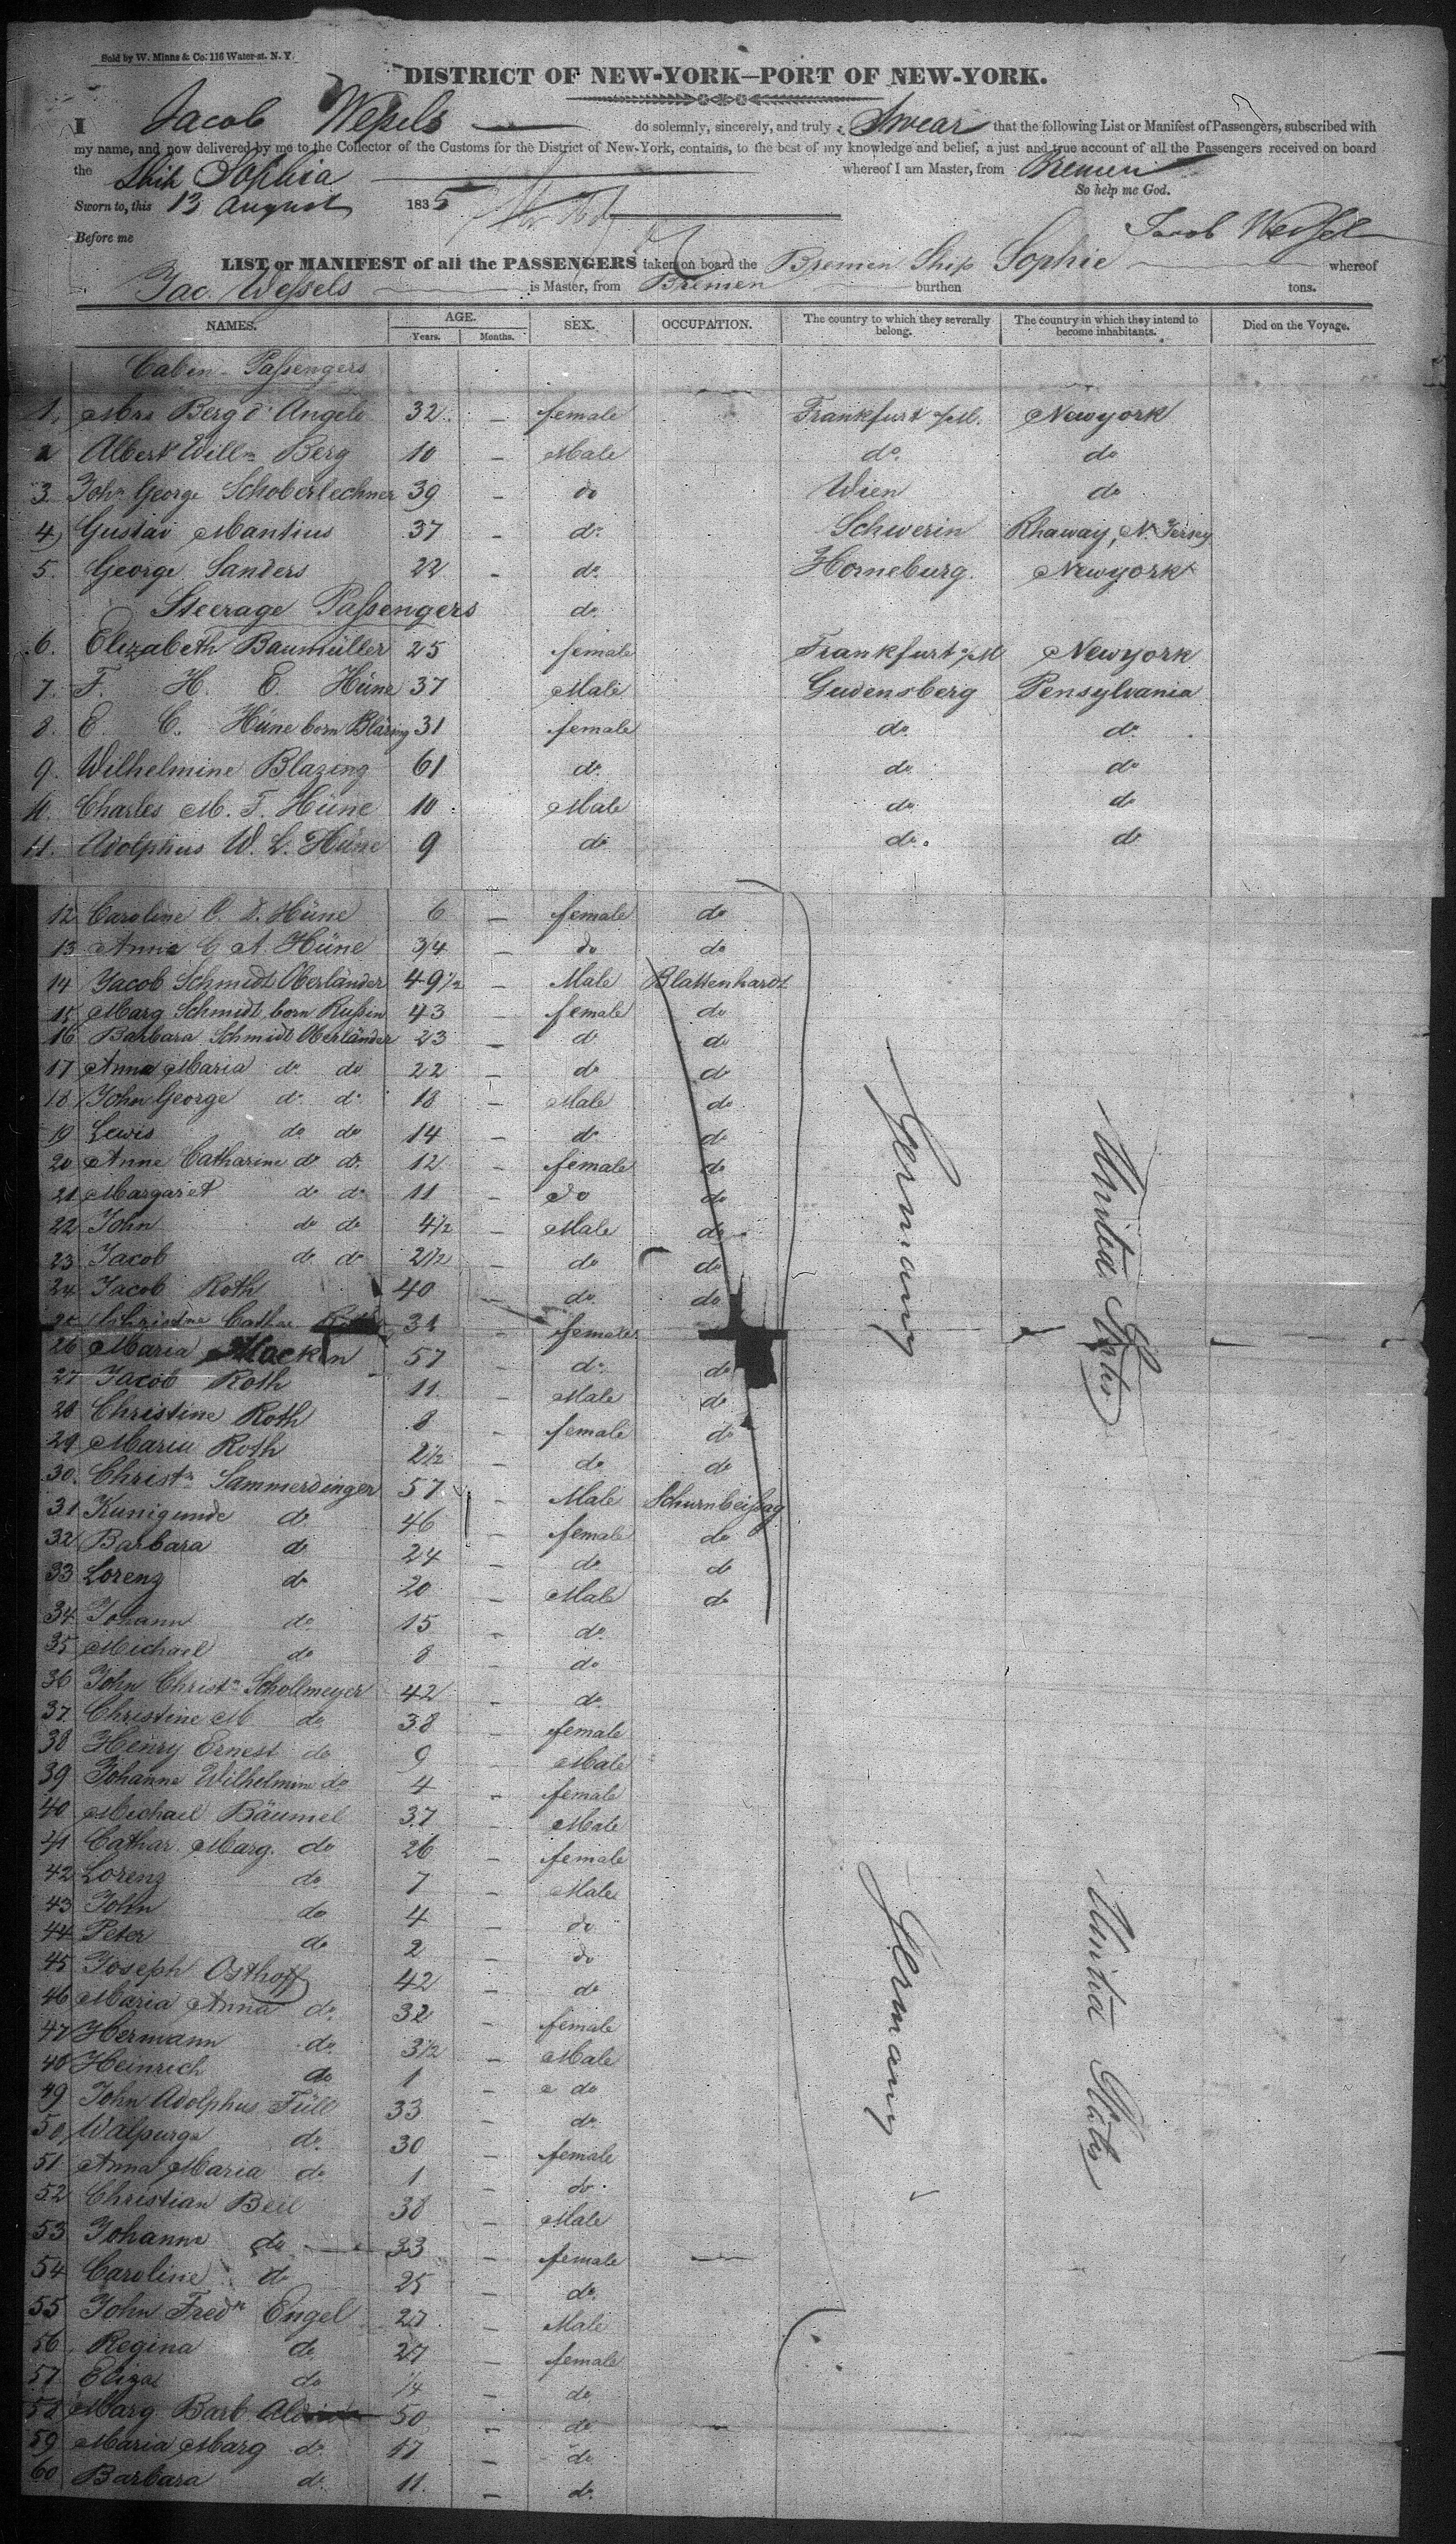 Sold by W. Minns & Co. 116 Water-st. N. Y.
DISTRICT OF NEW-YORK—PORT OF NEW-YORK.
I Jacob Weſsels do solemnly, sincerely, and truly Swear that the following List or Manifest of Passengers, subscribed with
my name, and now delivered by me to the Collector of the Customs for the District of New-York, contains, to the best of my knowledge and belief, a just and true account of all the Passengers received on board
the Ship Sophia whereof I am Master, from Bremen
So help me God.
Sworn to, this 13 August 1835
Jacob Weſsels
Before me
LIST or MANIFEST of all the PASSENGERS taken on board the Bremen Ship Sophie whereof
Jac. Weſsels is Master, from Bremen burthen tons.
NAMES. AGE. SEX. OCCUPATION. The country to which they severally belong. The country in which they intend to become inhabitants. Died on the Voyage.
Years. Months.
Cabin Paſsengers
1, Mrs Berg d'Angeli 32 — female Frankfurt a/M. Newyork
2 Albert Willm Berg 10 — Male do. do
3. John George Schoberlechner 39 — do Wien do
4) Gustav Mantius 37 — do. Schwerin Rhaway, N. Jersey
5. George Sanders 22 — do. Horneburg. Newyork
Steerage Paſsengers do.
6. Elizabeth Baumüller 25 female Frankfurt a/M Newyork
7. F. H. E. Hüne 37 Male Gudensberg Pensylvania
8. E. C. Hüne born Bläzing 31 female do. do.
9. Wilhelmine Blazing 61 do. do do
10. Charles M. F. Hüne 10 Male do do
11. Adolphus W. L. Hüne 9 do do. do
12 Caroline C. D. Hüne 6 — female do
13 Anna C A. Hüne 3/4 — do do
14 Jacob Schmidt Oberländer 49 1/2 — Male Blattenhardt
15 Marg Schmidt born Ruſsin 43 — female do
16 Barbara Schmidt Oberländer 23 — do do
17 Anna Maria do do 22 — do do
18 John George do. do. 18 — Male do
19 Lewis do do 14 — do do
20 Anne Catharine do do. 12 — female do
21 Margaret do do 11 — do do
22 John do do 4 1/2 — Male do
23 Jacob do do 2 1/2 — do do
24 Jacob Roth 40 — do do
25 Christine Cathar. 31 — female
26 Maria 57 — do. do
27 Jacob Roth 11 — Male do
28 Christine Roth 8 — female do
29 Maria Roth 2 1/2 — do do
30. Christn Sammerdinger 57 — Male
31 Kunigunde do. 46 — female do
32 Barbara do 24 — do do
33 Lorenz do 20 — Male do
34 Johann do 15 — do.
35 Michael do 8 — do
36 John Christn Schollmeyer 42 — do
37. Christine M do 38 — female
38 Henry Ernest do 9 — Male
39 Johanne Wilhelmine do 4 — female
40 Michael Bäumel 37 — Male
41 Cathar. Marg. do 26 — female
42 Lorenz do 7 — Male
43 John do 4 — do
44 Peter do 2 — do
45 Joseph Osthoff 42 — do
46 Maria Anna do. 32 — female
47 Hermann do. 3 1/2 — Male
48 Heinrich do 1 — do
49 John Adolphus Füll 33 — do.
50 Walpurga do. 30 — female
51 Anna Maria do. 1 — do.
52 Christian Beil 38 — Male
53 Johanne do 33 — female
54 Caroline do 25 — do.
55 John Fredr Engel 27 — Male
56 Regina do 27 — female
57 Eliza do 1/4 — do
58 Marg Barb. 50 — do
59 Maria Marg do. 17 — do
60 Barbara do. 11. — do.
Germany United States
Germany United States